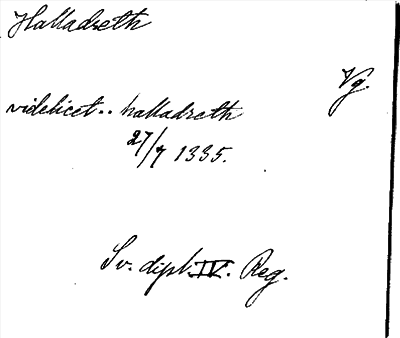 Halladreth
Vg.
videlicet.. halladreth
27/7 1335.
Sv. dipl. IV. Reg.